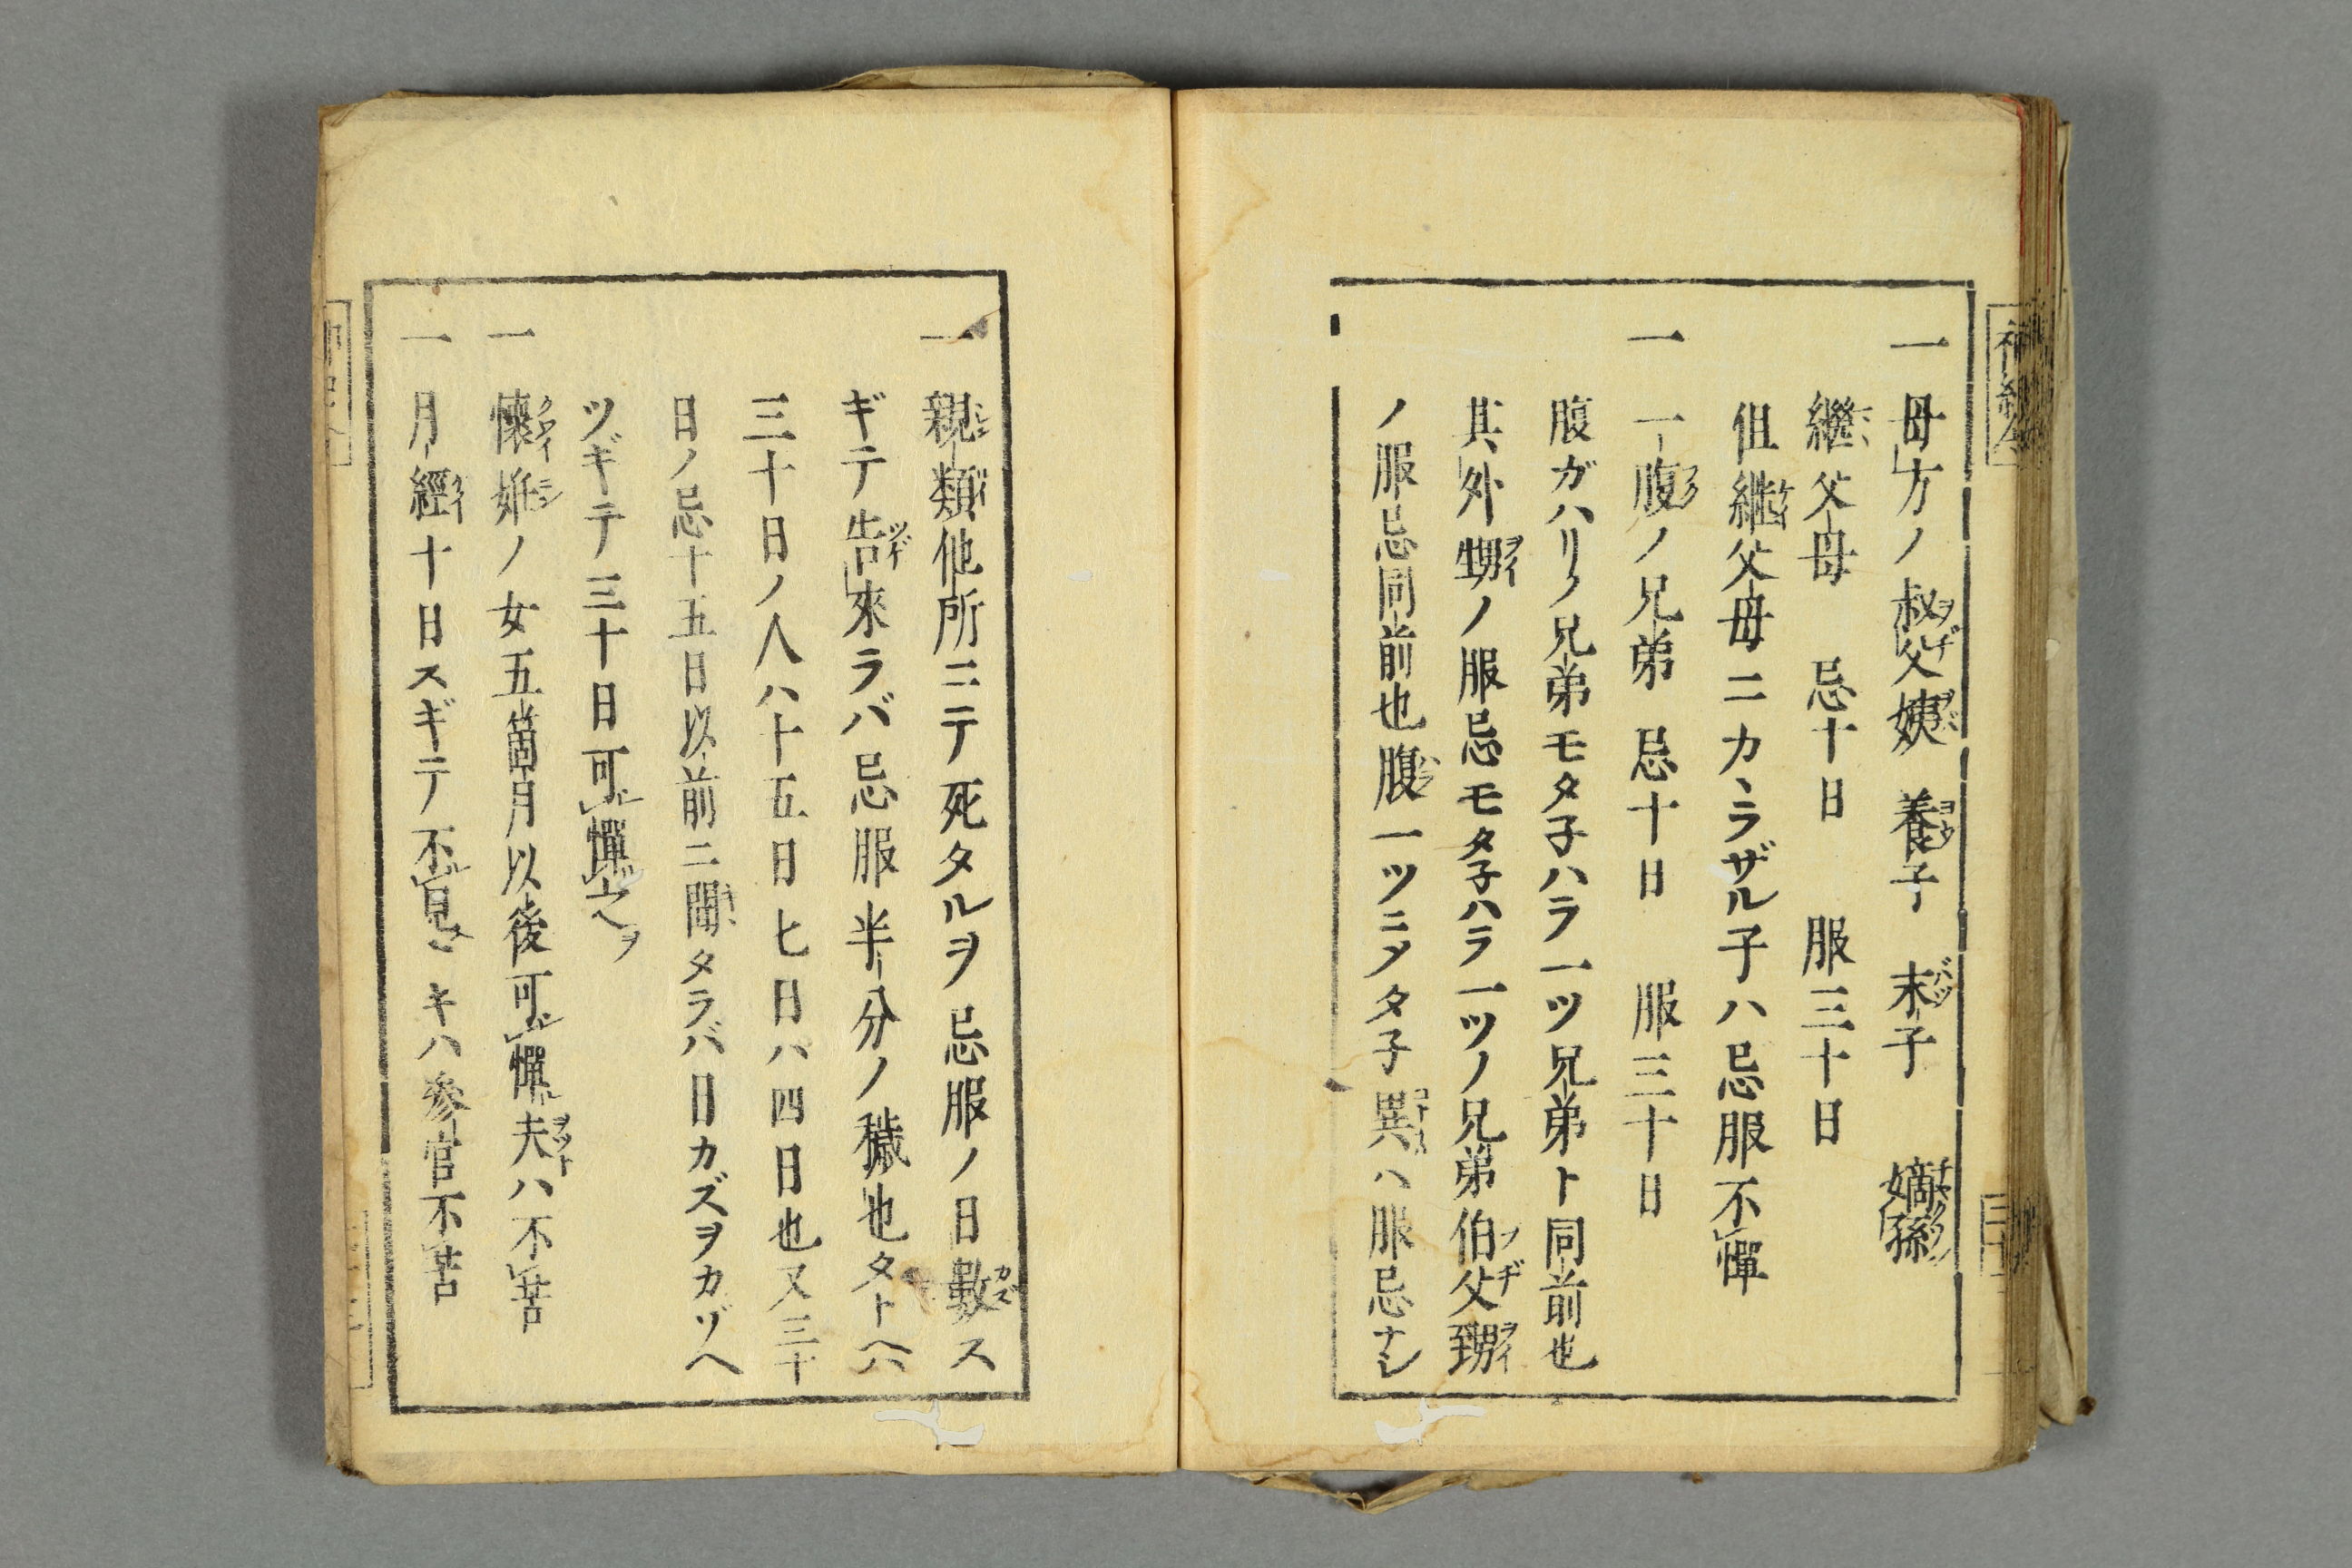 一 母方ノ叔父姨 養子 末子 嫡孫
繼父母 忌十日 服三十日
但繼父母ニカヽラザル子ハ忌服不憚
一 一腹ノ兄弟 忌十日 服三十日
腹ガハリノ兄弟モタ子ハラ一ツ兄弟ト同前也
其外甥ノ服忌モタ子ハラ一ツノ兄弟伯父甥
ノ服忌同前也腹一ツニメタ子異ハ服忌ナシ
一 親類他所ニテ死タルヲ忌服ノ日數ス
ギテ告來ラバ忌服半分ノ穢也タトヘハ
三十日ノ人ハ十五日七日ハ四日也又三十
日ノ忌十五日以前ニ聞タラバ日カズヲカゾヘ
ツギテ三十日可憚之ヲ
一 懷姙ノ女五箇月以後可憚夫ハ不苦
一 月經十日スギテ不見キハ參官不苦